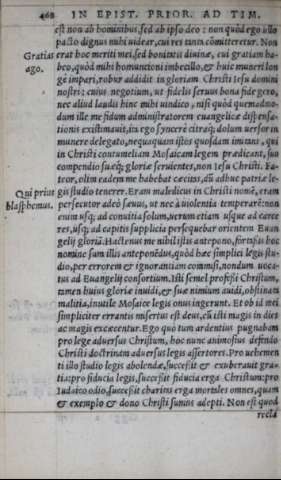 468 IN EPIST. PRIOR. AD TIM.
est non ab hominibus, sed ab ipso deo: non quòd ego illo
pacto dignus mihi uidear, cui res tanta committeretur. Non
Gratias erat hoc meriti mei, sed bonitatis diuinæ, cui gratiam ha-
ago. beo, quòd mihi homuncioni imbecillo, & huic muneri lon
gè impari, robur addidit in gloriam Christi Iesu domini
nostri: cuius negotium, ut fidelis seruus bona fide gero,
nec aliud laudis hinc mihi uindico, nisi quòd quemadmo-
dum ille me fidum administratorem euangelicæ dispensa-
tionis existimauit, ita ego syncerè citraq; dolum uersor in
munere delegato, nequaquam istos quosdam imitans, qui
in Christi contumeliam Mosaicam legem prædicant, suo
compendio suæq; gloriæ seruientes, non Iesu Christi. Fa-
teor, olim eadem me habebat cæcitas, dũ adhuc patriæ le-
Qui prius gis studio tenerer. Eram maledicus in Christi nomẽ, eram
blasphemus. persecutor adeò sæuus, ut nec à uiolentia temperarẽ: non
enim usq; ad conuitia solum, uerum etiam usque ad carce
res, usq; ad capitis supplicia persequebar orientem Euan
gelij gloriã. Hactenus me nihil istis antepono, fortassis hoc
nomine sum illis anteponẽdus, quòd hæc simplici legis stu-
dio, per errorem & ignorantiam commisi, nondum uoca-
tus ad Euangelij consortium. Isti semel professi Christum,
tamen huius gloriæ inuidi, & suæ nimium auidi, obstinata
malitia, inutile Mosaicæ legis onus ingerunt. Et ob id mei
simpliciter errantis misertus est deus, cũ isti magis in dies
ac magis excæcentur. Ego quò tum ardentius pugnabam
pro lege aduersus Christum, hoc nunc animosius defendo
Christi doctrinam aduersus legis assertores. Pro uehemen
ti illo studio legis abolendæ, successit & exuberauit gra-
tia: pro fiducia legis, successit fiducia erga Christum: pro
Iudaico odio, successit charitas erga mortales omnes, quam
& exemplo & dono Christi sumus adepti. Non est quòd
recta